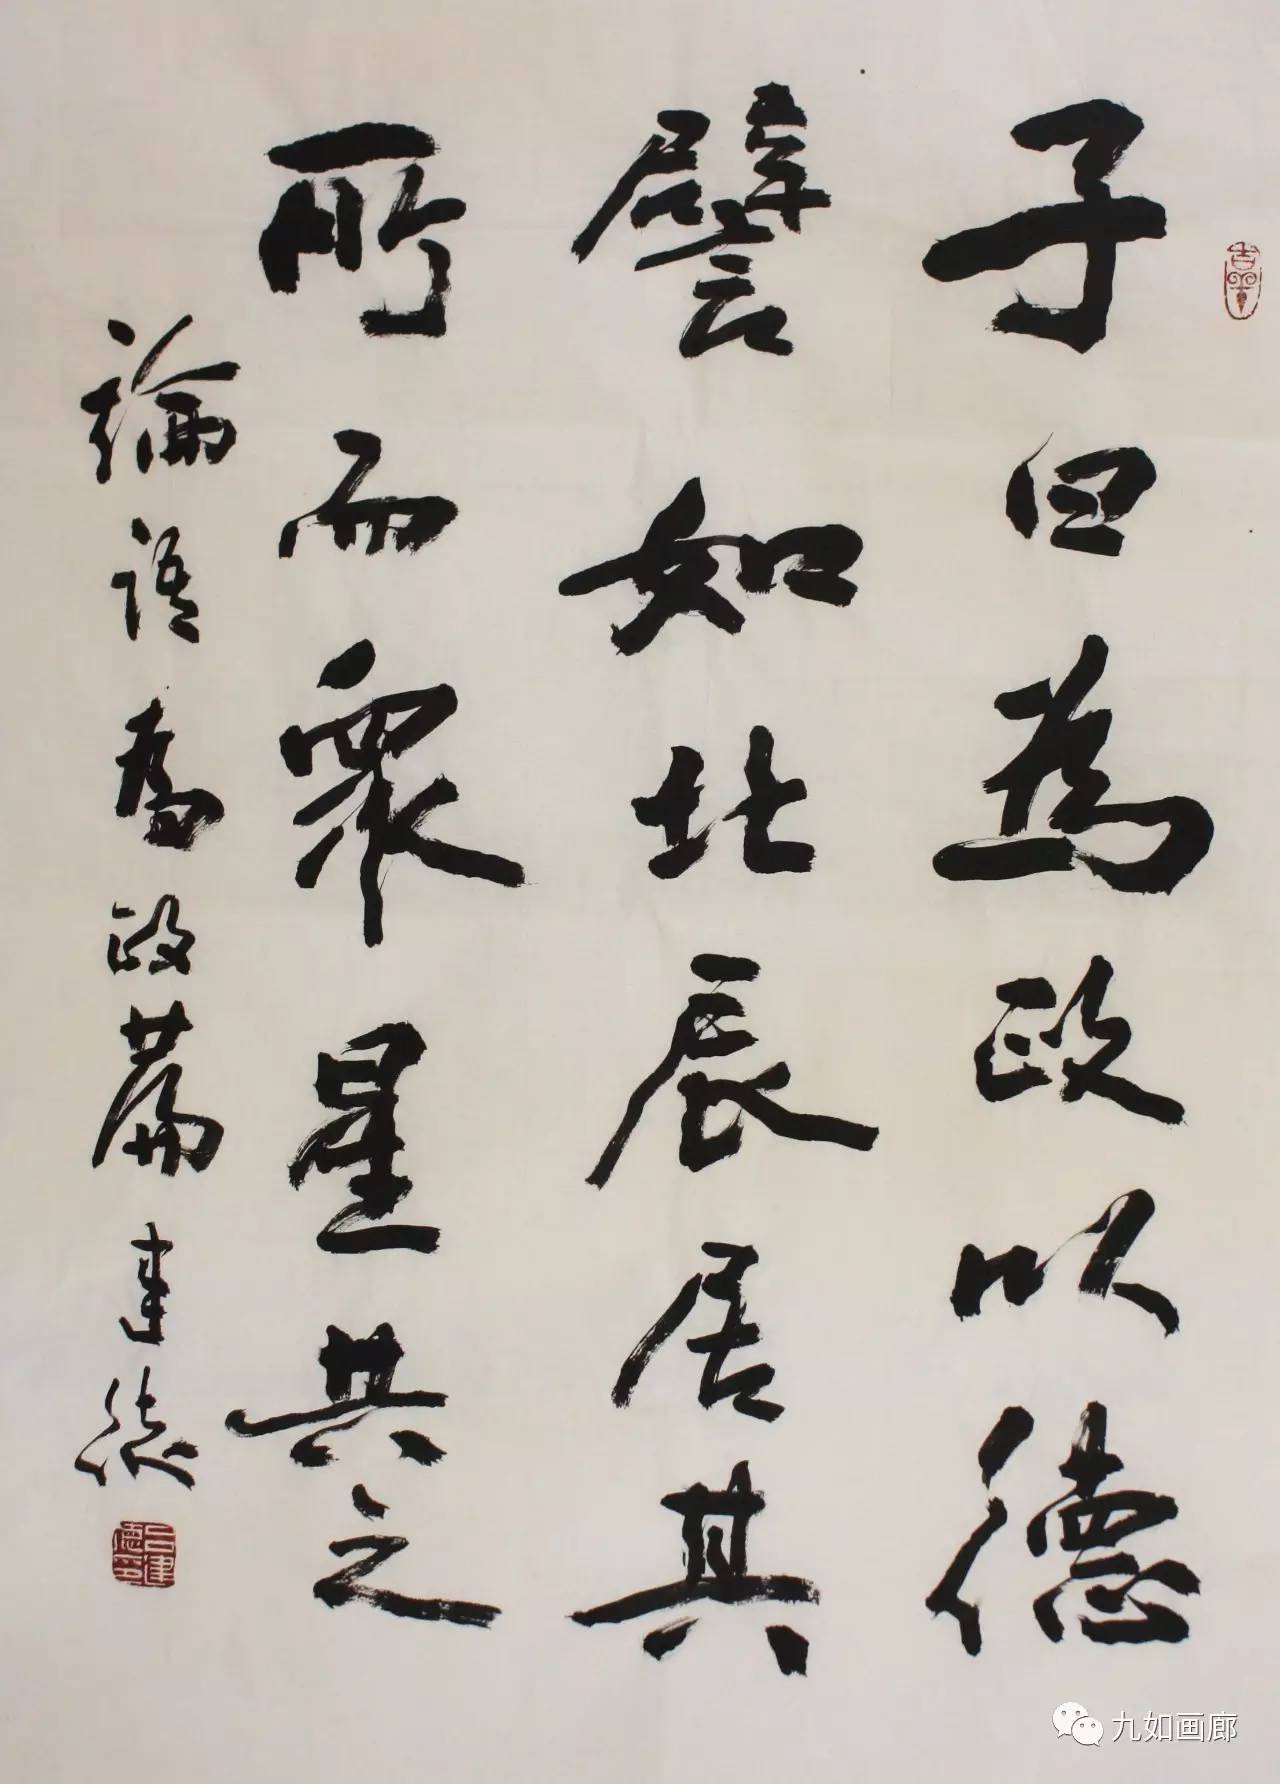 子曰為政以德
譬如北辰居其
所而眾星共之
論語為政篇 建德
吕建德印
九如画廊